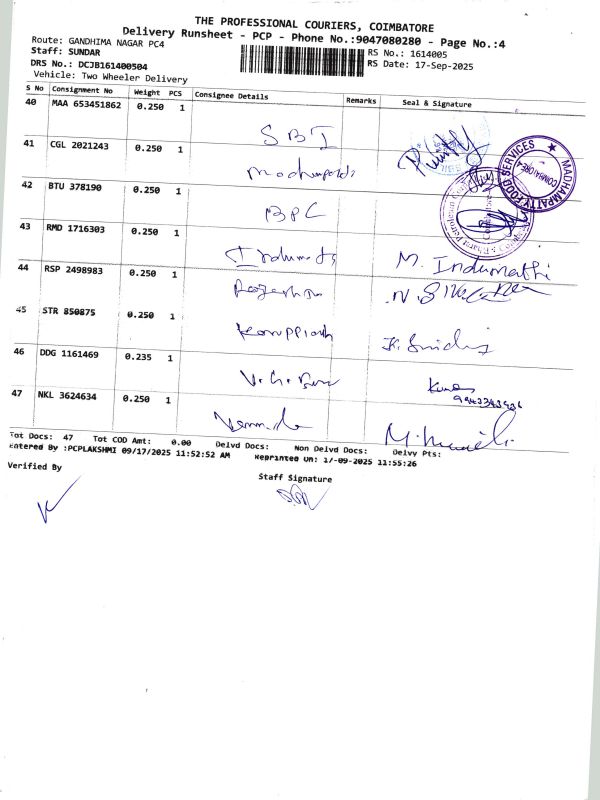 THE PROFESSIONAL COURIERS, COIMBATORE
Delivery Runsheet - PCP - Phone No.:9047080280 - Page No.:4
Route: GANDHIMA NAGAR PC4
RS No.: 1614005
Staff: SUNDAR
RS Date: 17-Sep-2025
DRS No.: DCJB161400504
Vehicle: Two Wheeler Delivery
S No Consignment No Weight PCS Consignee Details Remarks Seal & Signature
40 MAA 653451862 0.250 1 SBI
41 CGL 2021243 0.250 1
MADHAMPATTY FOOD SERVICES COIMBATORE
42 BTU 378190 0.250 1 BPC
43 RMD 1716303 0.250 1 Indumathi M. Indumathi
44 RSP 2498983 0.250 1 Rajeshwari
45 STR 850875 0.250 1 Karuppiah
46 DDG 1161469 0.235 1
47 NKL 3624634 0.250 1
Tot Docs: 47 Tot COD Amt: 0.00 Delvd Docs: Non Delvd Docs: Delvy Pts:
Entered By :PCPLAKSHMI 09/17/2025 11:52:52 AM Reprinted On: 17-09-2025 11:55:26
Verified By
Staff Signature